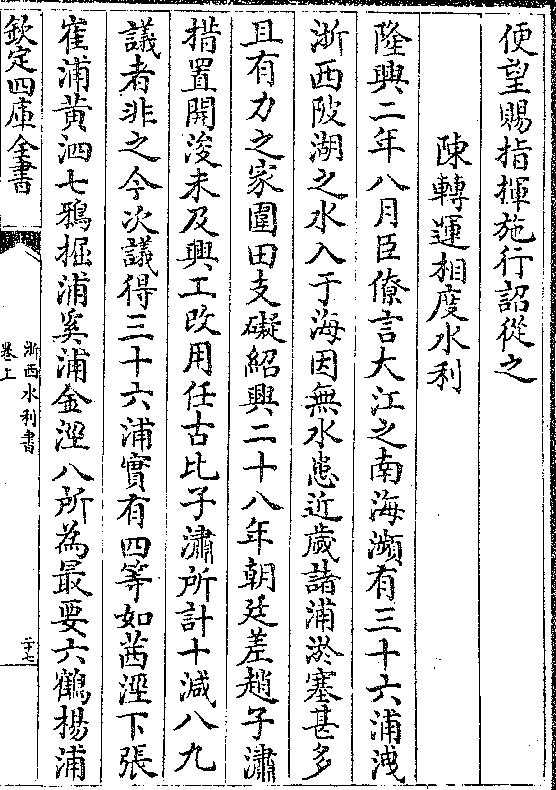 便望賜指揮施行詔從之
陳轉運相度水利
隆興二年八月臣僚言大江之南海瀕有三十六浦洩
浙西陂湖之水入于海因無水患近歲諸浦淤塞甚多
且有力之家圍田支礙紹興二十八年朝廷差趙子潚
措置開浚未及興工改用任古比子潚所計十減八九
議者非之今次議得三十六浦實有四等如茜涇下張
崔浦黃泗七鴉掘浦奚浦金涇八所為最要六鶴楊浦
欽定四庫全書
浙西水利書
卷上
二十七